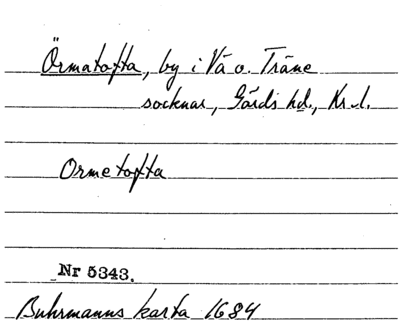 Örmatofta, by i Vä o. Träne
socknar, Gärds hd., Kr. l.
Ormetofta
Nr 5343.
Buhrmanns karta 1684